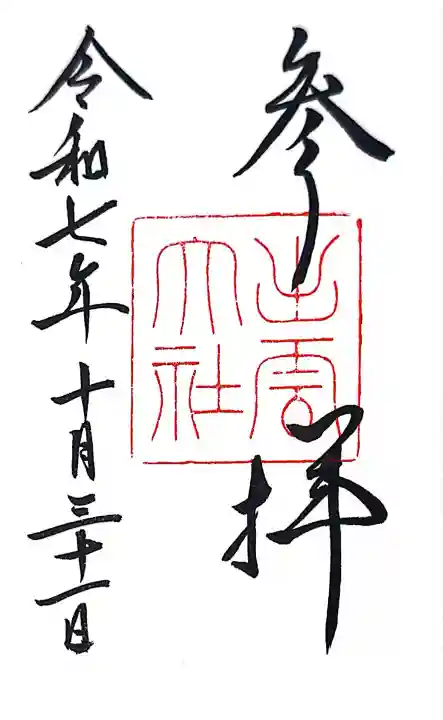 参拝
出雲大社
令和七年十月三十一日